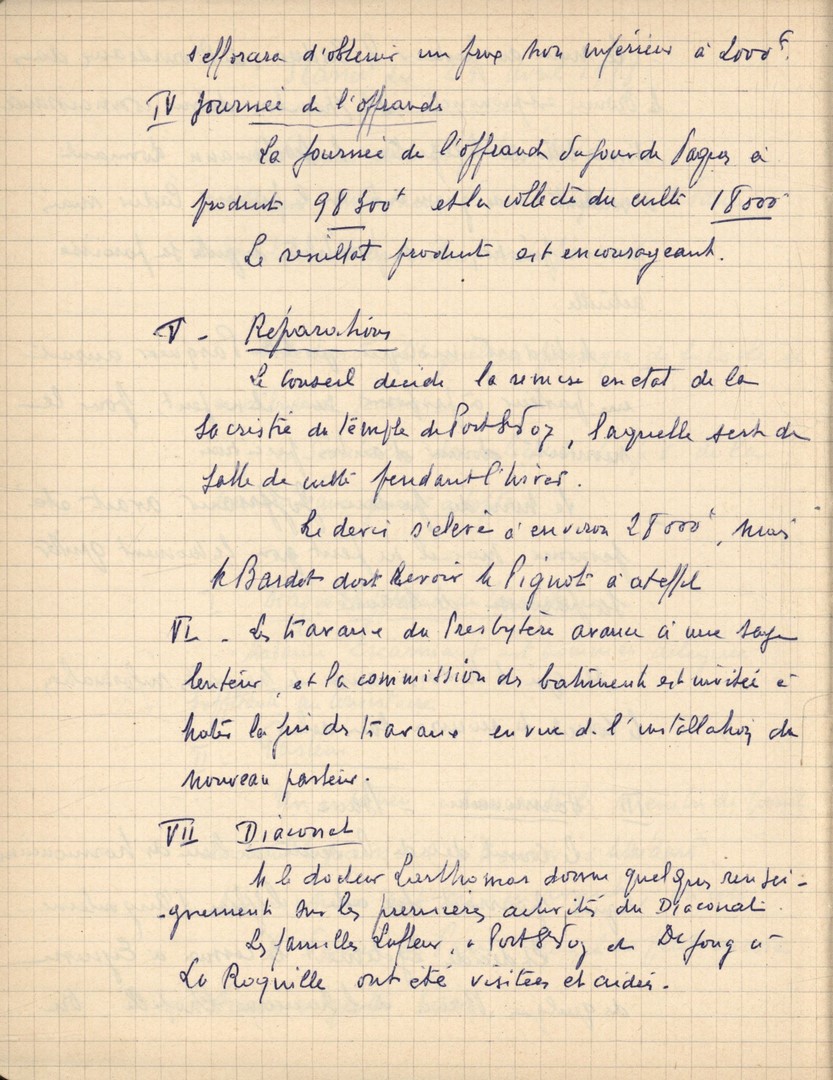 s'efforcera d'obtenir un prix non inférieur à 2000 f.
IV Journée de l'offrande
La Journée de l'offrande du jour de Pâques a
produit 98 300 f et la collecte du culte 18000
Le résultat produit est encourageant.
V - Réparations
Le Conseil décide la remise en état de la
Sacristie du temple de Port Ste Foy, laquelle sert de
salle de culte pendant l'hiver.
Le devis s'élève à environ 28 000 f, mais
M Bardet doit revoir M Pignot à cet effet
VI - Les travaux du Presbytère avance à une sage
lenteur, et la commission des bâtiments est invitée à
hâter la fin des travaux en vue de l'installation du
nouveau pasteur.
VII Diaconat
M le docteur Lasthomas donne quelques rensei-
-gnements sur les premières activités du Diaconat.
Les familles Lafleur, à Port Ste Foy et De Jong à
La Roquille ont été visitées et aidées.